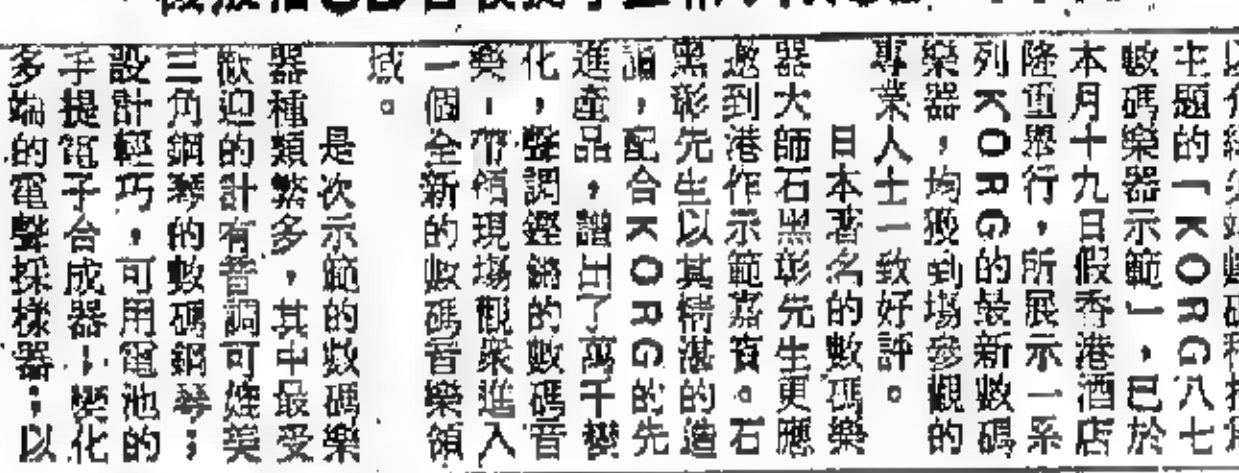 主題的「KORG八七
數碼樂器示範」，已於
本月十九日假香港酒店
隆重舉行，所展示一系
列KORG的最新數碼
樂器，均獲到場參觀的
專業人士一致好評。
目本著名的數碼樂
器大師石黑彰先生更應
邀到港作示範嘉賓。石
黑彰先生以其精湛的造
詣，配合KORG的先
進產品，譜出了萬千變
化，聲調鏗鏘的數碼音
樂，帶領現場觀衆進入
一個全新的數碼音樂領
域。
是次示範的數碼樂
器種類繁多，其中最受
歡迎的計有音調可媲美
三角鋼琴的數碼鋼琴；
設計輕巧，可用電池的
手提電子合成器；變化
多端的電聲採樣器；以